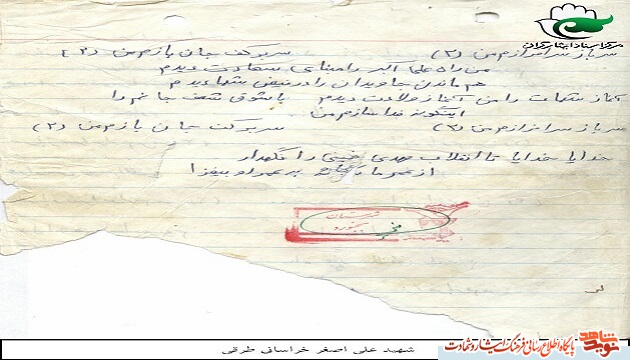 مرکز اسناد ایثارگران
سرباز سرافرازم من (۲) سر بر کف جان بازم من (۲)
من راه علی اکبر را منای سعادت دیدم
هم ماندن جاویدان را در فیض شهادت دیدم
آغاز شهادت را من آغاز ولادت دیدم با شوق شعف جانم را
اینگونه فدا سازم من
سرباز سرافرازم من (۲) سر بر کف جان بازم من (۲)
خدایا خدایا تا انقلاب مهدی خمینی را نگهدار
از عمر ما بر عمر او بیفزا
شهید علی اصغر خراسانی طرقی
نوید شاهد
پایگاه اطلاع رسانی فرهنگ ایثار و شهادت